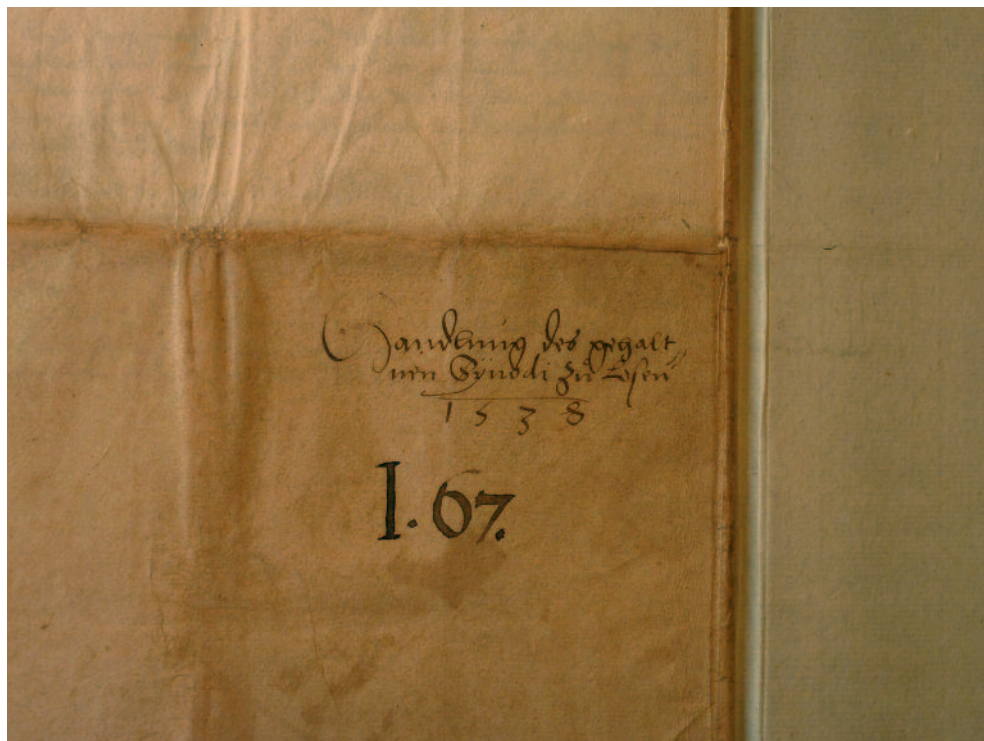 Handlung des gehalt=
nen Sÿnodi zů Losen
1538
I. 67.